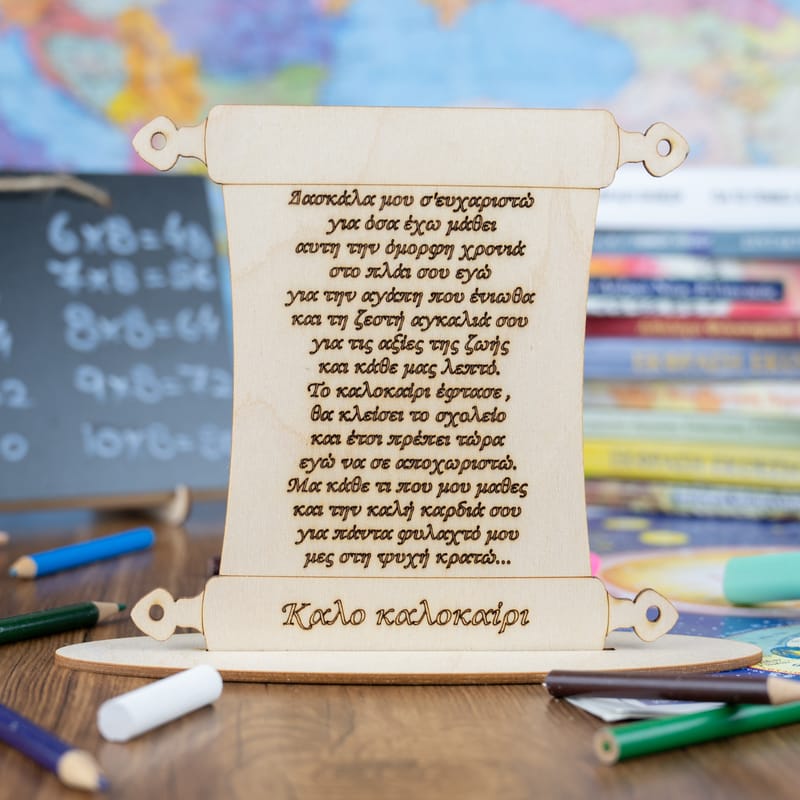 Δασκάλα μου σ'ευχαριστώ
για όσα έχω μάθει
αυτη την όμορφη χρονιά
στο πλάι σου εγώ
για την αγάπη που ένιωθα
και τη ζεστή αγκαλιά σου
για τις αξίες της ζωής
και κάθε μας λεπτό.
Το καλοκαίρι έφτασε ,
θα κλείσει το σχολείο
και έτσι πρέπει τώρα
εγώ να σε αποχωριστώ.
Μα κάθε τι που μου μαθες
και την καλή καρδιά σου
για πάντα φυλαχτό μου
μες στη ψυχή κρατώ...
Καλο καλοκαίρι
6x8=48
8x8=64
9x8=72